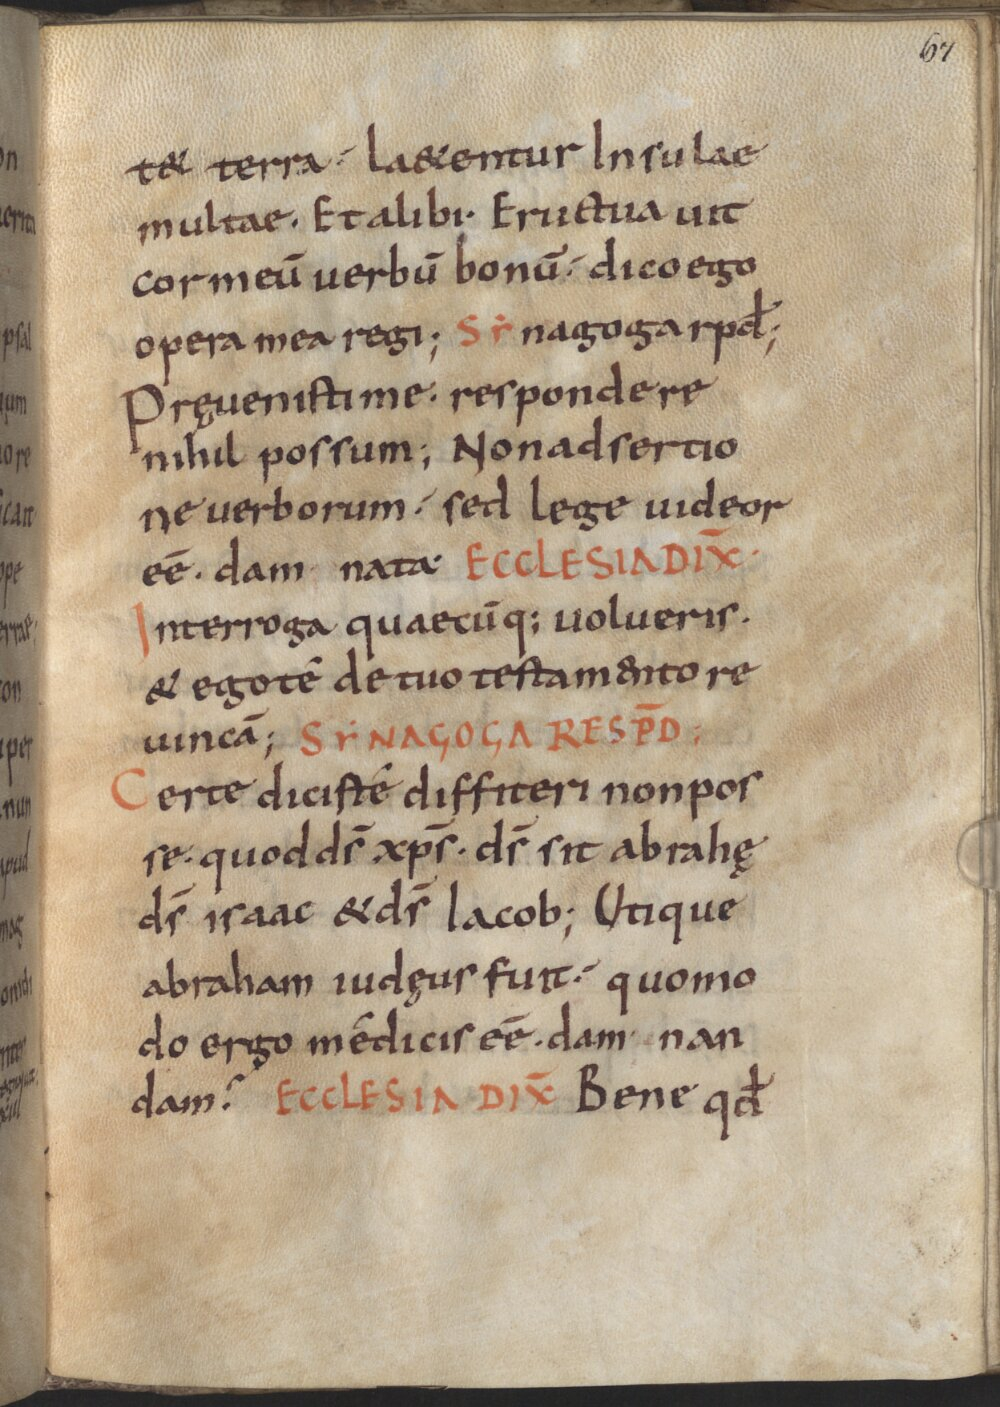 67
t& terra· la&entur Insulae
multae. Et alibi· Eructua uit
cor meū uerbū bonū· dico ego
opera mea regi; Sẏnagoga rpđ;
Pręuenisti me· respondere
nihil possum; Non adsertio
ne uerborum· sed lege uideor
eē. dam nata· ECCLESIA DIX̄·
Interroga quaecūq; uolueris.
& ego tē de tuo testamento re
uincā; SẏNAGOGA RESP̄D;
Certe dicistē diffiteri non pos
se. quod ds̄ xps̄. ds̄ sit abrahę
ds̄ isaac & ds̄ Iacob; Utique
abraham iudęus fuit· quomo
do ergo mē dicis eē. dam nan
dam? ECCLESIA DIX̄ Bene qđ